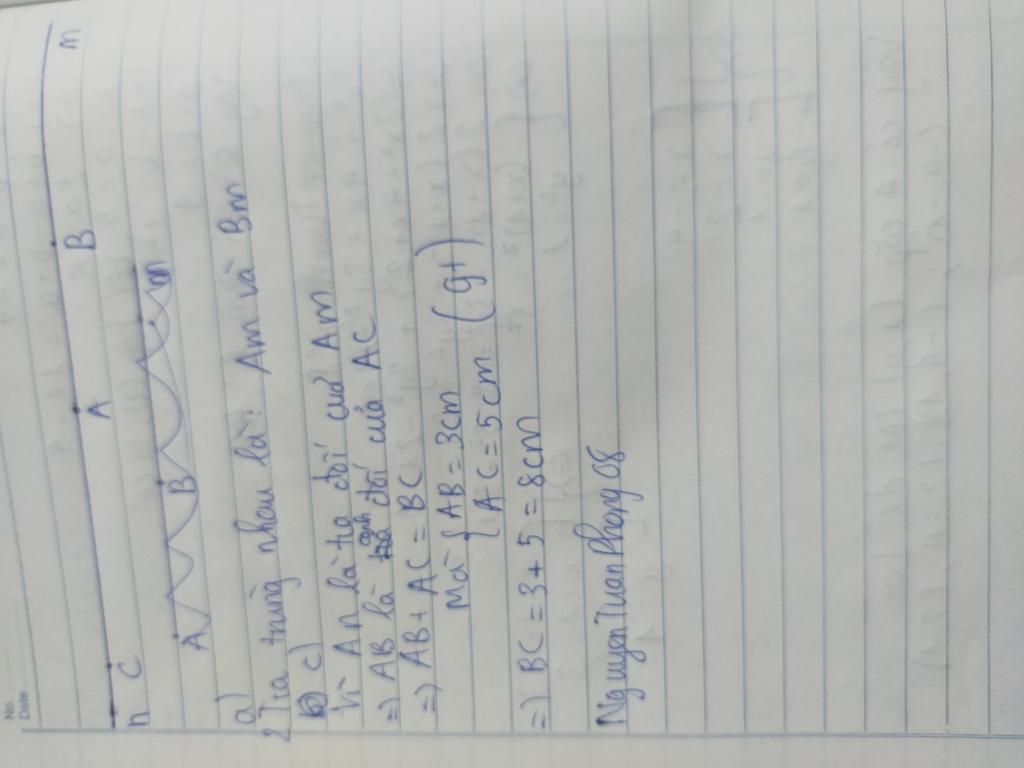 No.
Date
n C A B m
A B m
a)
2 Tia trùng nhau là: Am và Bm
b) c)
Vì An là tia đối của Am
=) AB là cạnh đối của AC
=) AB + AC = BC
Mà { AB = 3cm
{ AC = 5cm (gt)
=) BC = 3 + 5 = 8cm
Nguyen Tuan Phong 08